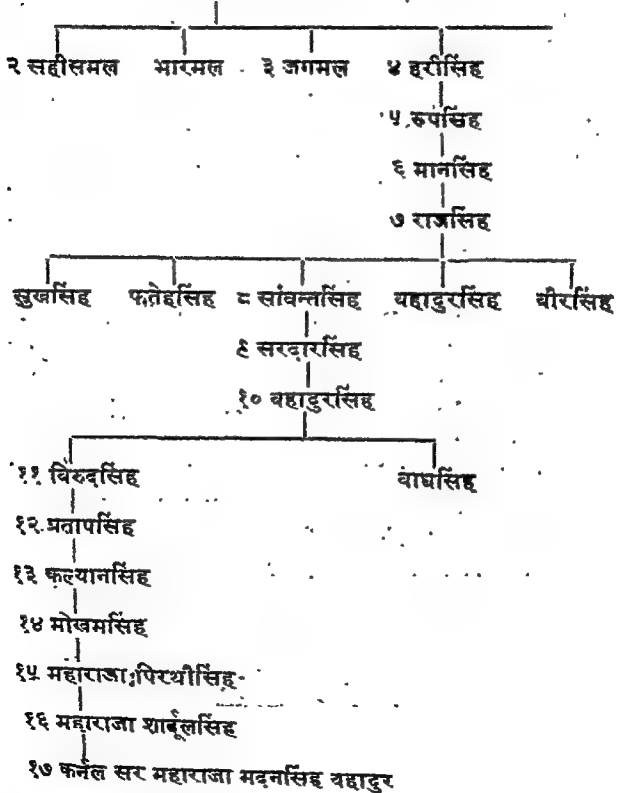 २ सहीसमल भारमल ३ जगमल ४ हरीसिंह
५ रुपसिंह
६ मानसिंह
७ राजसिंह
सुखसिंह फतेहसिंह ८ सांवन्तसिंह वहादुरसिंह वीरसिंह
९ सरदारसिंह
१० वहादुरसिंह
११ विरुदसिंह वाघसिंह
१२ प्रतापसिंह
१३ कल्यानसिंह
१४ मोखमसिंह
१५ महाराजा पिरथीसिंह
१६ महाराजा शार्दूलसिंह
१७ कर्नल सर महाराजा मदनसिंह वहादुर